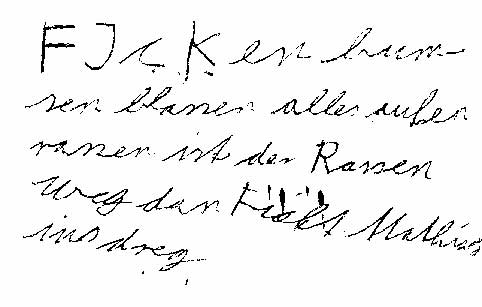 FICKen bum-
sen blasen alles außer
rasen ist der Rasen
weg dan Fickt Mathias
ins dreg